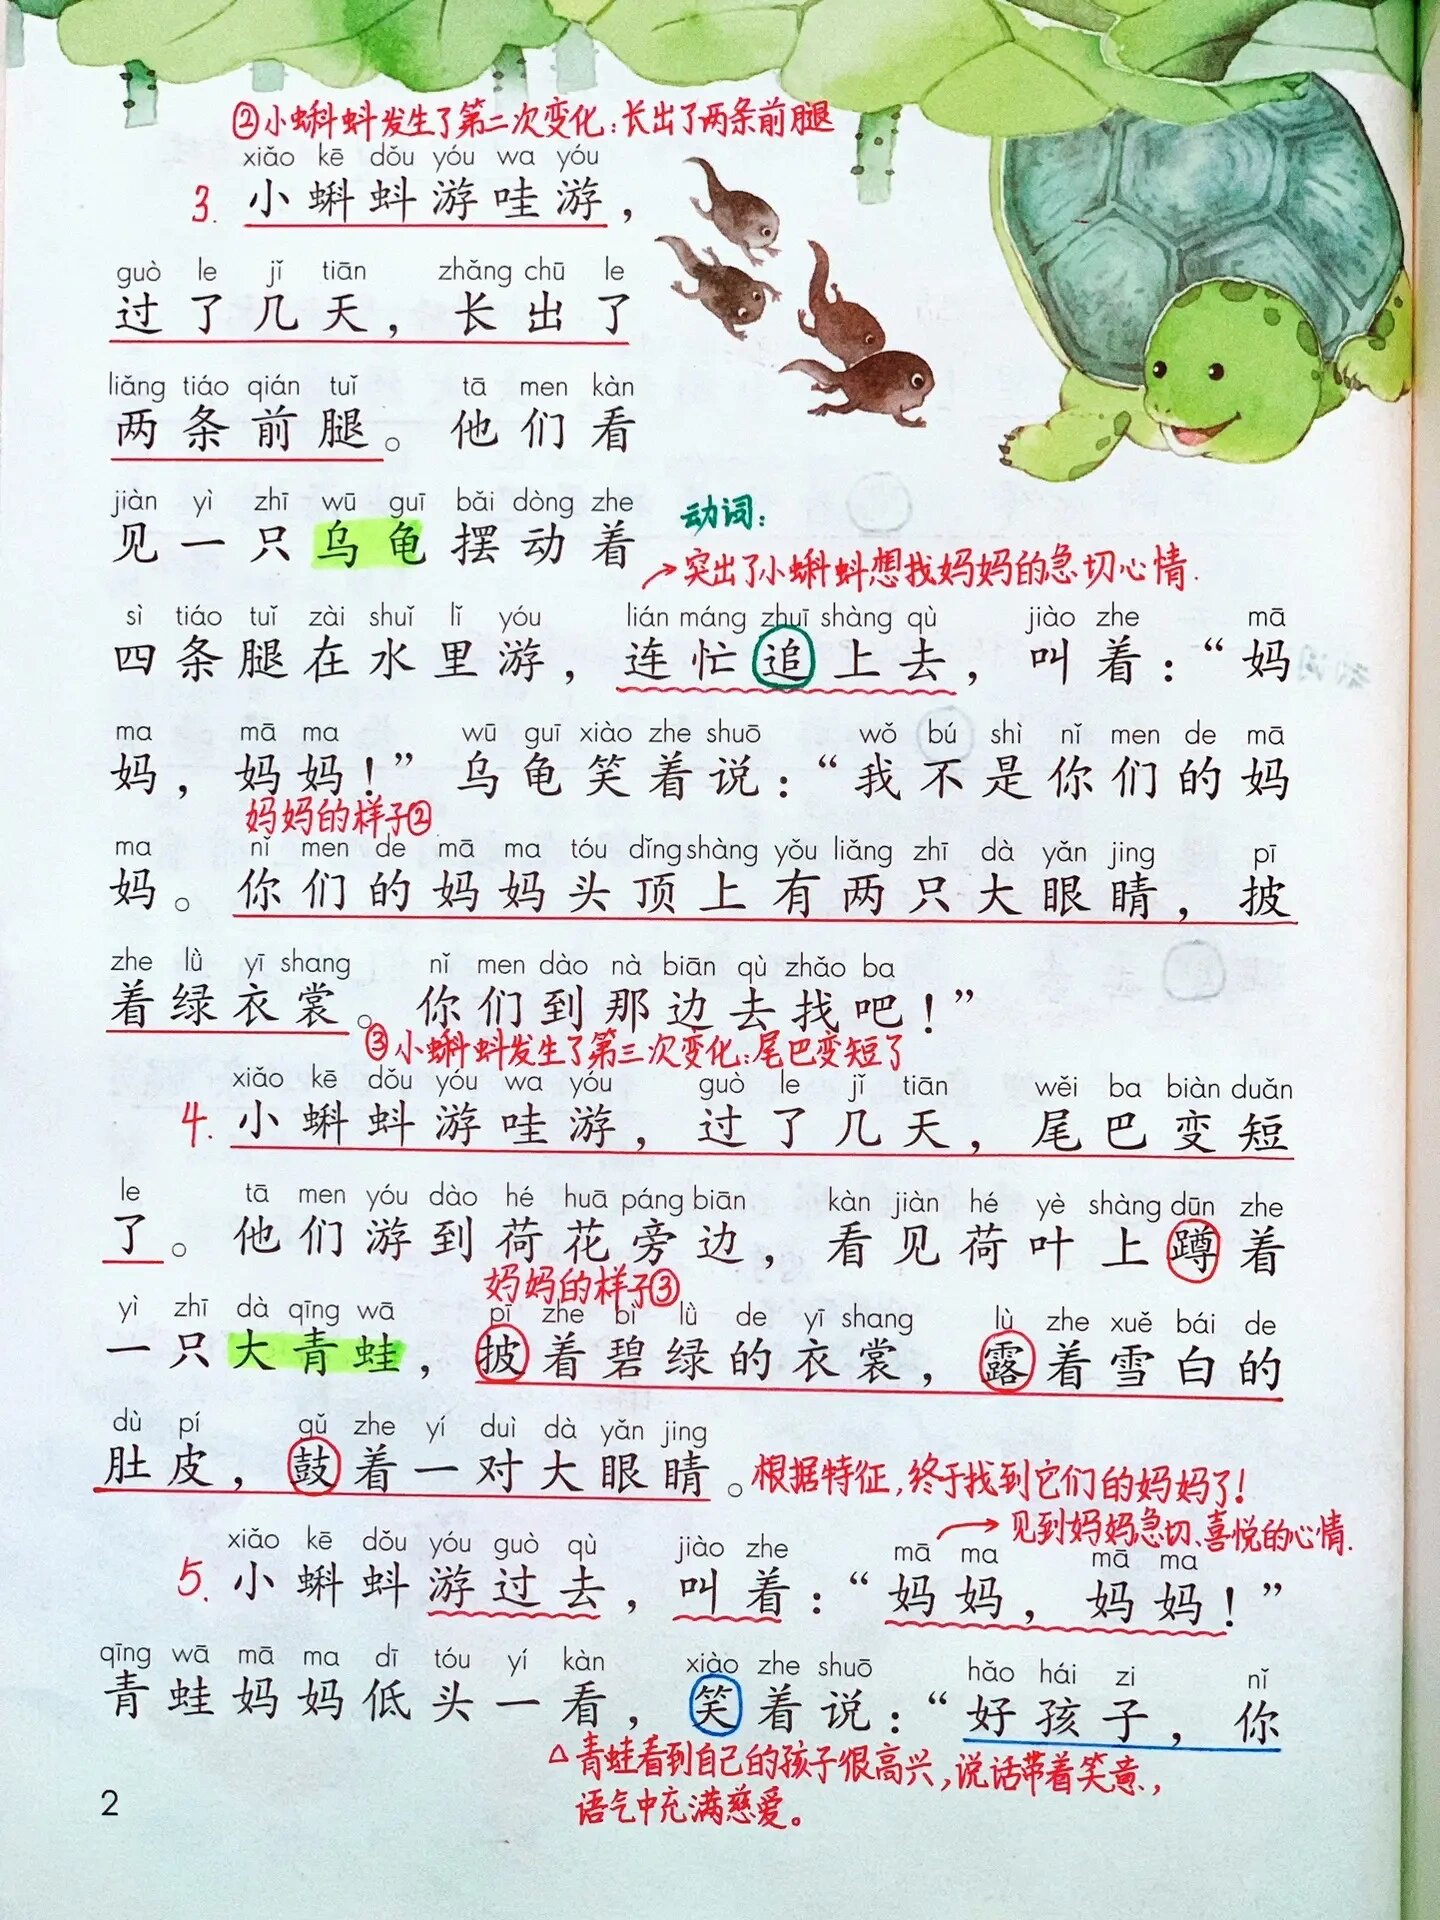 ②小蝌蚪发生了第二次变化:长出了两条前腿
xiǎo kē dǒu yóu wa yóu
3. 小蝌蚪游哇游，
guò le jǐ tiān zhǎng chū le
过了几天，长出了
liǎng tiáo qián tuǐ tā men kàn
两条前腿。他们看
jiàn yì zhī wū guī bǎi dòng zhe
见一只乌龟摆动着
动词:
→突出了小蝌蚪想找妈妈的急切心情.
sì tiáo tuǐ zài shuǐ lǐ yóu lián máng zhuī shàng qù jiào zhe mā
四条腿在水里游，连忙追上去，叫着：“妈
ma mā ma wū guī xiào zhe shuō wǒ bú shì nǐ men de mā
妈，妈妈！”乌龟笑着说：“我不是你们的妈
妈妈的样子②
ma nǐ men de mā ma tóu dǐng shàng yǒu liǎng zhī dà yǎn jing pī
妈。你们的妈妈头顶上有两只大眼睛，披
zhe lǜ yī shang nǐ men dào nà biān qù zhǎo ba
着绿衣裳。你们到那边去找吧！”
③小蝌蚪发生了第三次变化:尾巴变短了
xiǎo kē dǒu yóu wa yóu guò le jǐ tiān wěi ba biàn duǎn
4. 小蝌蚪游哇游，过了几天，尾巴变短
le tā men yóu dào hé huā páng biān kàn jiàn hé yè shàng dūn zhe
了。他们游到荷花旁边，看见荷叶上蹲着
妈妈的样子③
yì zhī dà qīng wā pī zhe bì lǜ de yī shang lù zhe xuě bái de
一只大青蛙，披着碧绿的衣裳，露着雪白的
dù pí gǔ zhe yí duì dà yǎn jing
肚皮，鼓着一对大眼睛。
根据特征,终于找到它们的妈妈了!
→见到妈妈急切、喜悦的心情.
xiǎo kē dǒu yóu guò qù jiào zhe mā ma mā ma
5. 小蝌蚪游过去，叫着：“妈妈，妈妈！”
qīng wā mā ma dī tóu yí kàn xiào zhe shuō hǎo hái zi nǐ
青蛙妈妈低头一看，笑着说：“好孩子，你
△青蛙看到自己的孩子很高兴,说话带着笑意,
语气中充满慈爱。
2